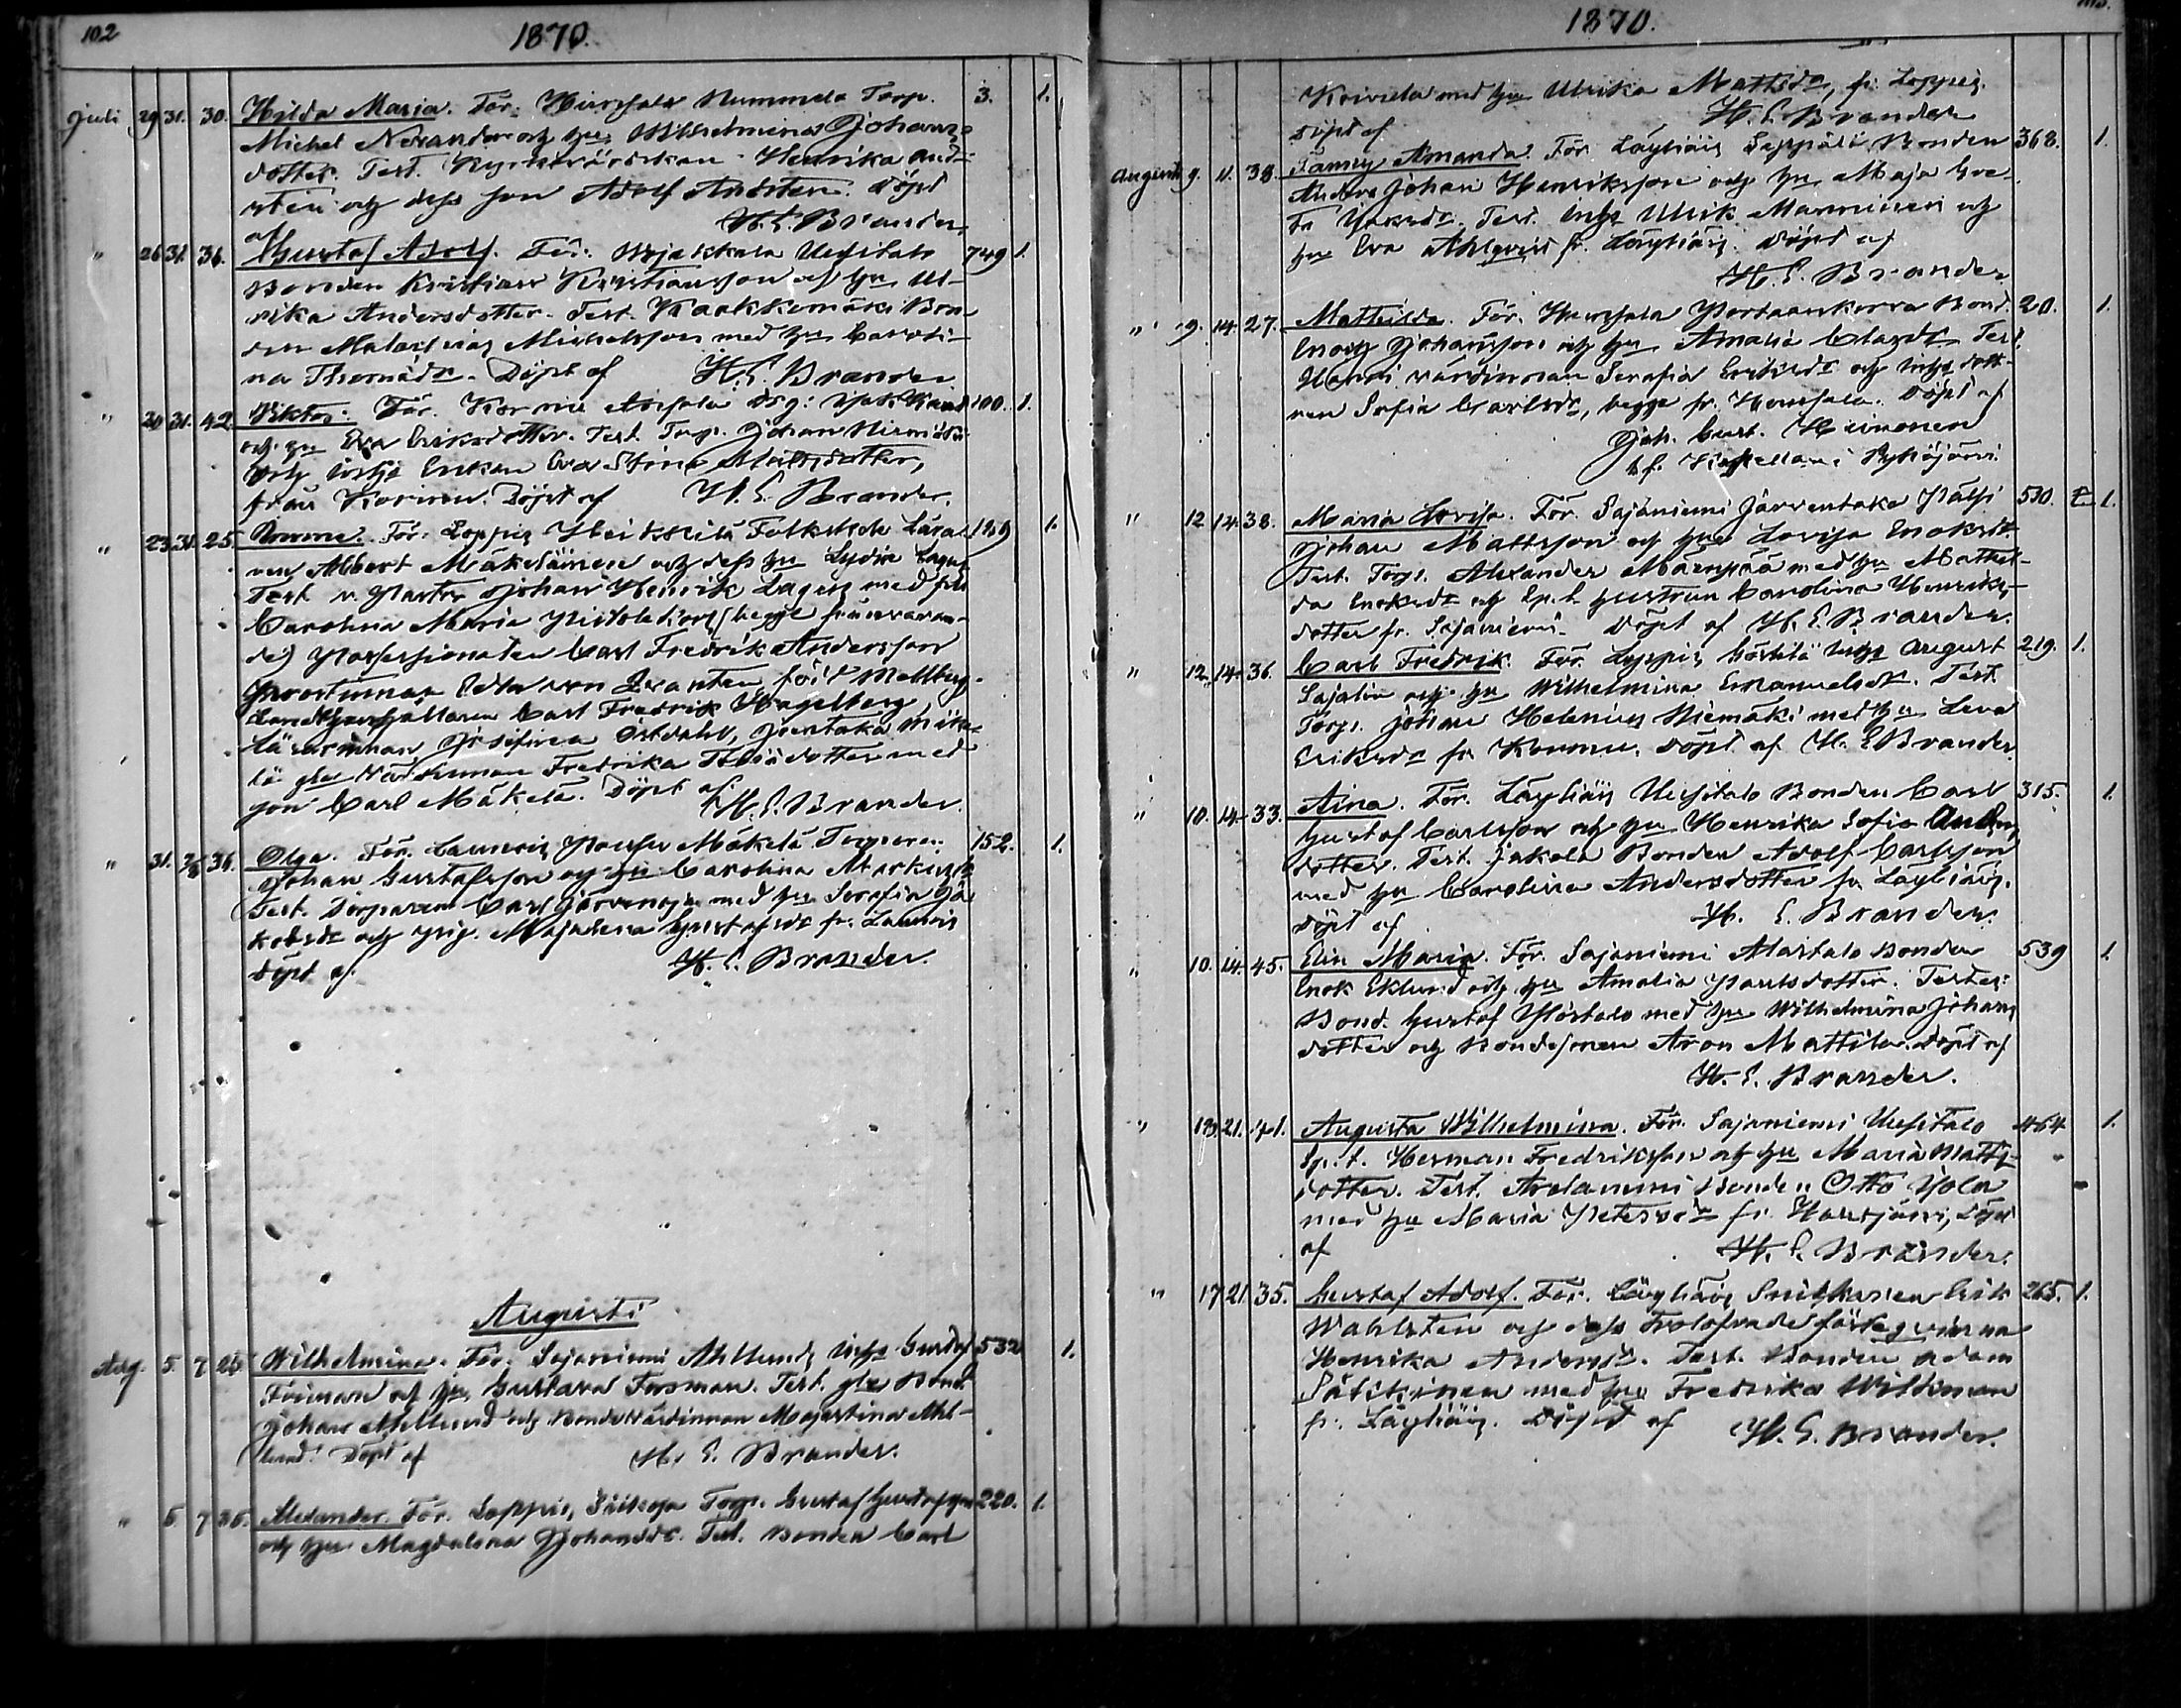 102
1870.
Juli 29 31. 30. Hilda Maria. För. Hirsjala Nummela Torp. 3. 1.
Michel Nerander och hu Wilhelmina Johans-
dotter. Test. Henrika And-
sten och dess son Adolf Andsten. Döpt
af H. E. Brander.
" 26 31. 36. Gustaf Adolf. För. Uusitalo 749 1.
Bonden Kristian Kristiansson och hu Ul-
rika Andersdotter. Test. Kaakkomäki Bon-
den Malachias Michelsson med hu Caroli-
na Thomädr. Döpt af H. E. Brander
" 30 31. 42. Viktor. För. Kormu 100. 1.
och hu Eva Eriksdotter. Test. Torp. Johan
och Enkan Eva Stina Mattsdotter,
från Kormu. Döpt af H. E. Brander.
" 23. 31. 25. För. Loppis Heikkilä Folkskole Lära- 1.
ren Albert Mäkeläinen och dess hu Lydia
Test. Pastor Johan Henrik Lagus med fru
Carolina Maria (begge frånvaran-
de) Possessionaten Carl Fredrik Andersson
Edla von Qvanten född Mellberg
Carl Fredrik Hagelberg,
Lärarinnan Josefina Östdahl,
lä gla Värdinnan Fredrika med
son Carl Mäkelä. Döpt af H. E. Brander.
" 31. 7/8 36. Olga. För. Launois Mäkelä Torparen 152. 1.
Johan Gustafsson och hu Carolina Markusdr
Test. Torparen Carl Järvenoja med hu Serafia Ja-
kobsdr och pig. Majalena Gustafsdr fr. Launois
Döpt af H. E. Brander.
Augusti
Aug. 5. 7. 25. Wilhelmina. För. Sajaniemi Ahllund, Gustaf 532 1.
och hu Gustava Forsman. Test. gla Bond.
Johan Ahllund och Bondevärdinnan Majastina Ahl-
lund. Döpt af H. E. Brander.
" 5. 7 36. Alexander. För. Loppis, Torp. Gustaf Gustafsson 220. 1.
och hu Magdalena Johansdr. Test. Bonden Carl
1870.
med hu Ulrika Mattsdr, fr. Loppis.
Döpt af H. E. Brander
Augusti 9. 11. 38. Fanny Amanda. För. Läyliäis Seppälä Bonden 368. 1.
Anders Johan Henriksson och hu Maja Gre-
ta Test. Inhs Ulrik Manninen och
hu Eva Ahlqvist fr. Läyliäis. Döpt af
H. E. Brander
" 9. 14. 27. Mathilda. För. Hirsjala Portaankorva Bond. 20. 1.
Enoch Johansson och hu Amalia Clasdr. Test.
värdinnan Serafia Eriksdr och inhs dott-
ren Sofia Carlsdr, begge fr. Hirsjala. Döpt af
Joh. Gust. Heimonen
t.f. Kapellan i Pyhäjärvi
" 12 14. 38. Maria Lovisa. För. Sajaniemi Järventaka 510. 1.
Johan Mattsson och hu Lovisa Enoksdr.
Test. Torp. Alexander Mäenpää med hu Mathil-
da Enoksdr och Sp.t. hustrun Carolina Henriks-
dotter fr. Sajaniemi. Döpt af H. E. Brander.
" 12. 14. 36. Carl Fredrik. För. Loppis inhs August 219. 1.
Sajalin och hu Wilhelmina Emanuelsdr. Test.
Torp. Johan Helenius Niemäki med hu Leva
Eriksdr fr. Kormu. Döpt af H. E. Brander.
" 10. 14. 33. Aina. För. Läyliäis Uusitalo Bonden Carl 315. 1.
Gustaf Carlsson och hu Henrika Sofia Anders-
dotter. Test. Jakola Bonden Adolf Carlsson
med hu Carolina Andersdotter fr. Läyliäis.
Döpt af H. E. Brander.
" 10. 14. 45. Elin Maria. För. Sajaniemi Alastalo Bonden 539 1.
Enok Eklund och hu Amalia Paulsdotter. Testes:
Bond. Gustaf Ylöstalo med hu Wilhelmina Johans
dotter och Bondesonen Aron Mattila. Döpt af
H. E. Brander.
" 19. 21. 41. Augusta Wilhelmina. För. Sajaniemi Uusitalo 464 1.
Sp.t. Herman Fredriksson och hu Maria Matts-
dotter. Test. Bonden Otto Yola
med hu Maria Petersdr fr. Hausjärvi, Döpt
af H. E. Brander.
" 17 21. 35. Gustaf Adolf. För. Läyliäis Erik 265. 1.
Wahlsten och dess Trolofvade fästeqvinna
Henrika Andersdr. Test. Bonden Adam
Sätikinen med hu Fredrika Wildman
fr. Läyliäis. Döpt af H. E. Brander.